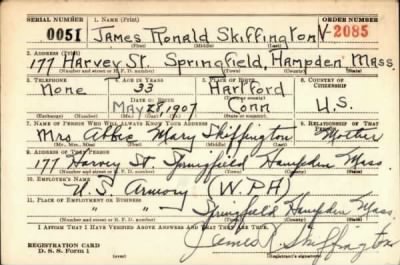 SERIAL NUMBER 1. NAME (Print) ORDER NUMBER
0051 James Ronald Skiffington V-2085
(First) (Middle) (Last)
2. ADDRESS (Print)
177 Harvey St. Springfield, Hampden Mass.
(Number and street or R. F. D. number) (Town) (County) (State)
3. TELEPHONE 4. AGE IN YEARS 5. PLACE OF BIRTH 6. COUNTRY OF CITIZENSHIP
None 33 Hartford
DATE OF BIRTH (Town or county)
May 28, 1907 Conn U.S.
(Exchange) (No.) (Mo.) (Day) (Yr.) (State or country)
7. NAME OF PERSON WHO WILL ALWAYS KNOW YOUR ADDRESS 8. RELATIONSHIP OF THAT PERSON
Mrs Abbie Mary Skiffington Mother
(Mr., Mrs., Miss) (First) (Middle) (Last)
9. ADDRESS OF THAT PERSON
177 Harvey St. Springfield Hampden Mass.
(Number and street or R. F. D. number) (Town) (County) (State)
10. EMPLOYER'S NAME
U.S. Armory (W.P.A)
11. PLACE OF EMPLOYMENT OR BUSINESS
" - Springfield Hampden Mass.
(Number and street or R. F. D. number) (Town) (County) (State)
I AFFIRM THAT I HAVE VERIFIED ABOVE ANSWERS AND THAT THEY ARE TRUE.
REGISTRATION CARD
D. S. S. Form 1 James R. Skiffington
(over) (Signature)